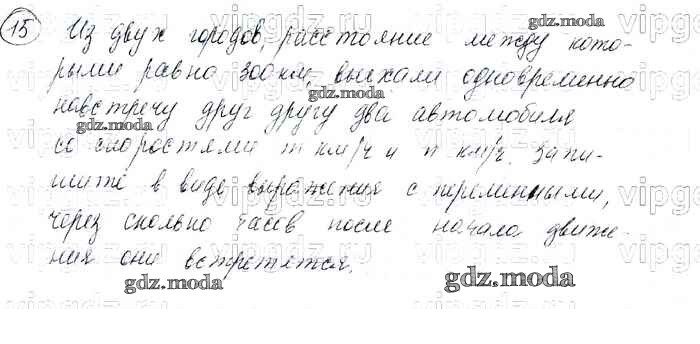 15 Из двух городов, расстояние между кото-
рыми равно 300 км, выехали одновременно
навстречу друг другу два автомобиля
со скоростями m км/ч и n км/ч. Запи-
шите в виде выражения с переменными,
через сколько часов после начала движе-
ния они встретятся.